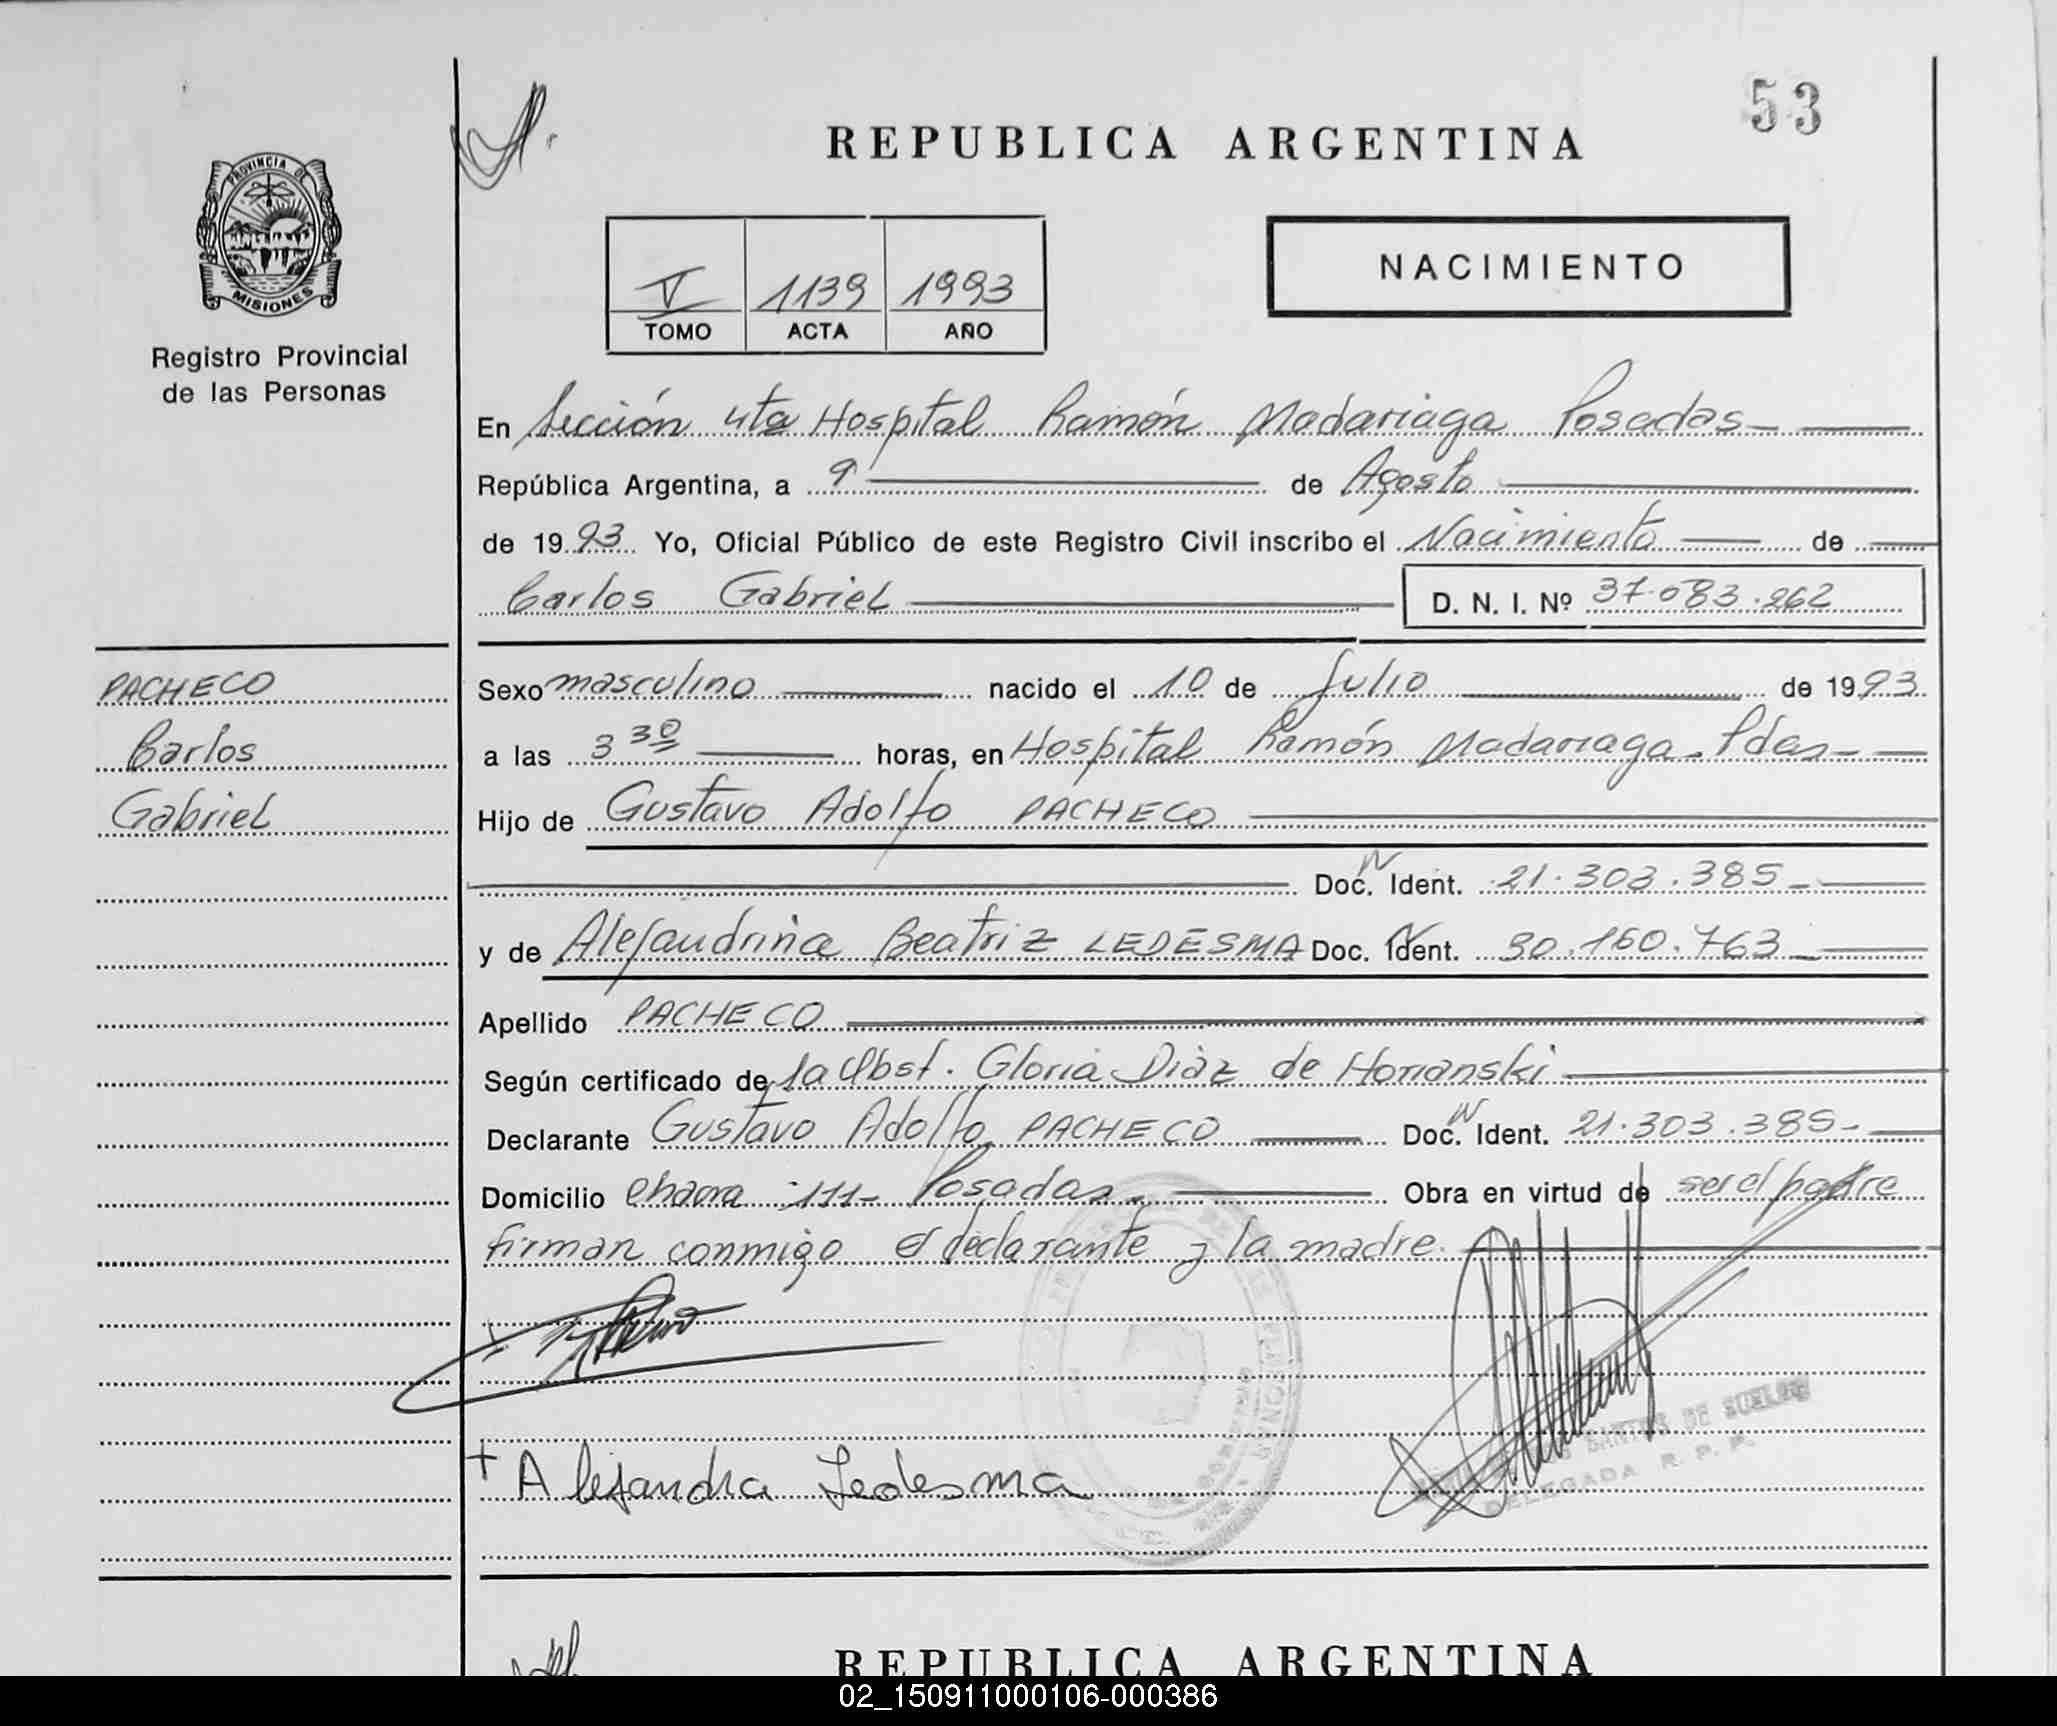 53
REPUBLICA ARGENTINA
PROVINCIA DE
MISIONES
Registro Provincial
de las Personas
V 1139 1993
TOMO ACTA AÑO
NACIMIENTO
En Sección 4ta Hospital Ramón Madariaga Posadas
República Argentina, a 9 de Agosto
de 1993 Yo, Oficial Público de este Registro Civil inscribo el Nacimiento de
Carlos Gabriel D. N. I. Nº 37.083.262
PACHECO
Carlos
Gabriel
Sexo masculino nacido el 10 de Julio de 1993
a las 3 30 horas, en Hospital Ramón Madariaga - Pdas -
Hijo de Gustavo Adolfo PACHECO
Doc. N Ident. 21.303.385 -
y de Alejandrina Beatriz LEDESMA Doc. N Ident. 30.160.763 -
Apellido PACHECO
Según certificado de la Obst. Gloria Diaz de Horianski
Declarante Gustavo Adolfo PACHECO Doc. N Ident. 21.303.385 -
Domicilio chacra 111 - Posadas - Obra en virtud de ser el padre
firman conmigo el declarante y la madre.
+ Alejandra Ledesma
SANTOS DE
DELEGADA R. P. P.
REPUBLICA ARGENTINA
02_150911000106-000386